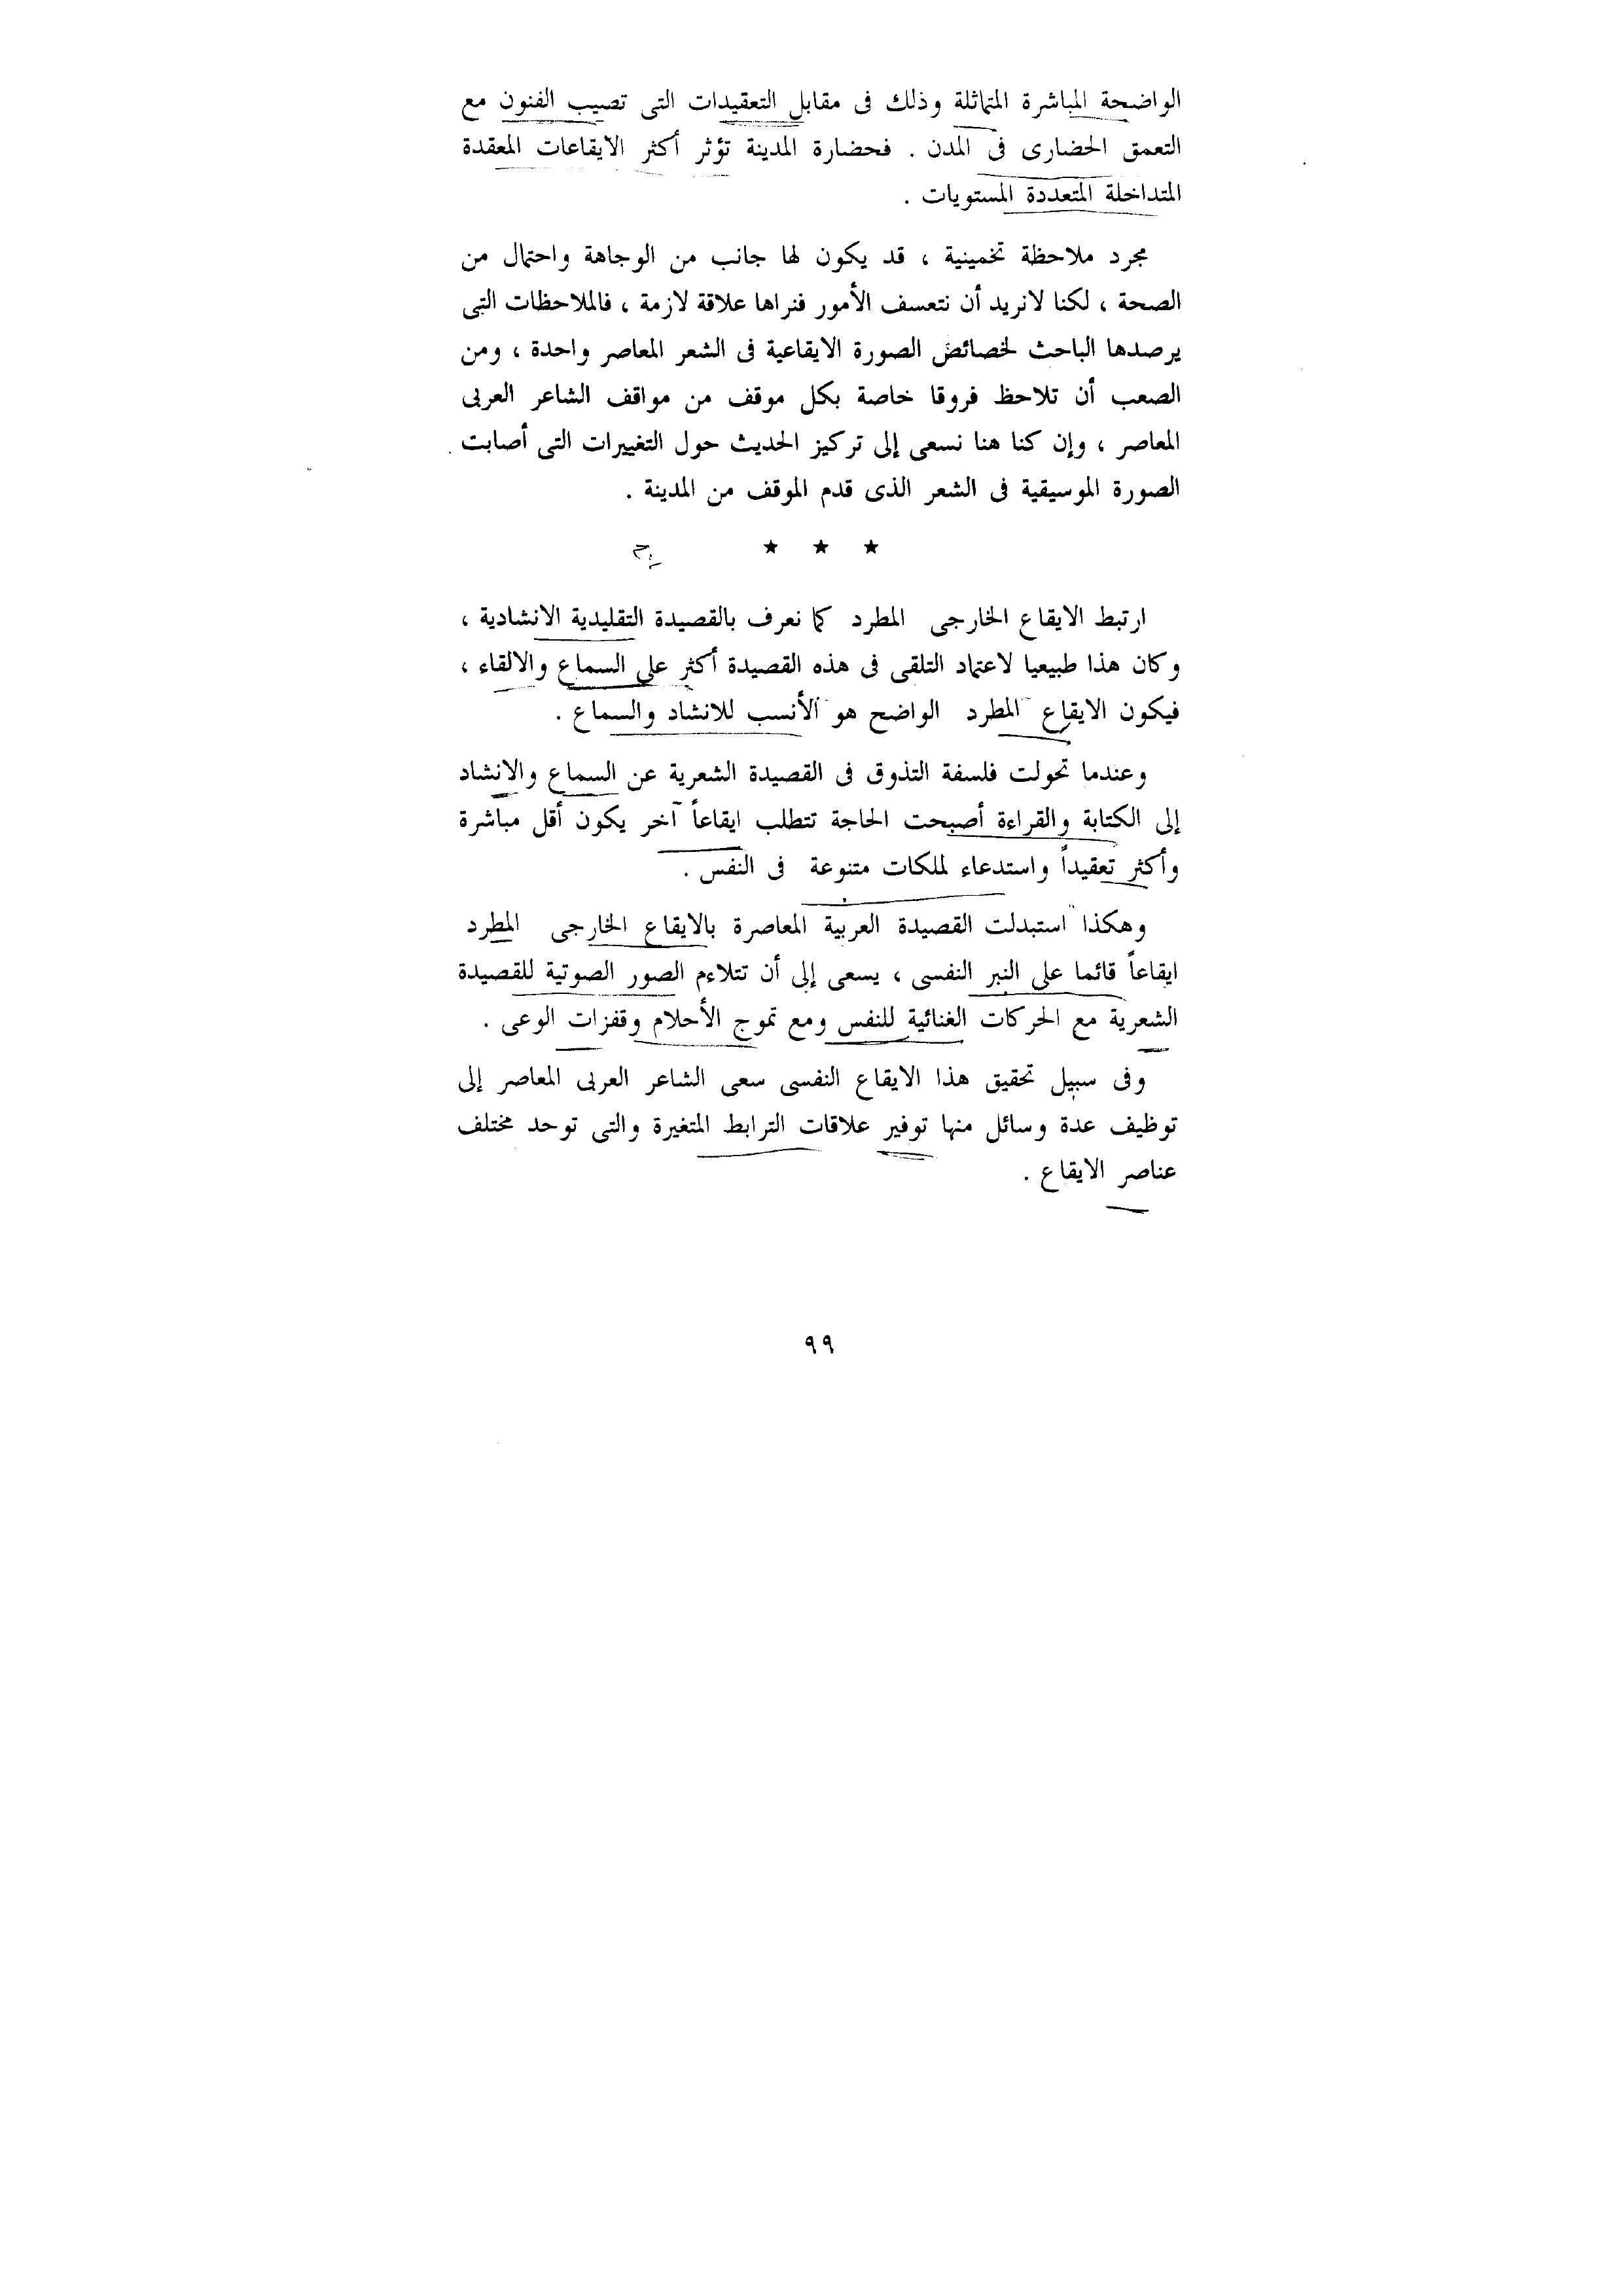 الواضحة المباشرة المتماثلة وذلك فى مقابل التعقيدات التى تصيب الفنون مع
التعمق الحضارى فى المدن . فحضارة المدينة تؤثر أكثر الايقاعات المعقدة
المتداخلة المتعددة المستويات .
مجرد ملاحظة تخمينية ، قد يكون لها جانب من الوجاهة واحتمال من
الصحة ، لكنا لانريد أن نتعسف الأمور فنراها علاقة لازمة ، فالملاحظات التى
يرصدها الباحث لخصائص الصورة الايقاعية فى الشعر المعاصر واحدة ، ومن
الصعب أن تلاحظ فروقا خاصة بكل موقف من مواقف الشاعر العربى
المعاصر ، وإن كنا هنا نسعى إلى تركيز الحديث حول التغييرات التى أصابت
الصورة الموسيقية فى الشعر الذى قدم الموقف من المدينة .
★ ★ ★
ارتبط الايقاع الخارجى المطرد كما نعرف بالقصيدة التقليدية الانشادية ،
وكان هذا طبيعيا لاعتماد التلقى فى هذه القصيدة أكثر على السماع والالقاء ،
فيكون الايقاع المطرد الواضح هو الأنسب للانشاد والسماع .
وعندما تحولت فلسفة التذوق فى القصيدة الشعرية عن السماع والانشاد
إلى الكتابة والقراءة أصبحت الحاجة تتطلب ايقاعاً آخر يكون أقل مباشرة
وأكثر تعقيداً واستدعاء لملكات متنوعة فى النفس .
وهكذا استبدلت القصيدة العربية المعاصرة بالايقاع الخارجى المطرد
ايقاعاً قائما على النبر النفسى ، يسعى إلى أن تتلاءم الصور الصوتية للقصيدة
الشعرية مع الحركات الغنائية للنفس ومع تموج الأحلام وقفزات الوعى .
وفى سبيل تحقيق هذا الايقاع النفسى سعى الشاعر العربى المعاصر إلى
توظيف عدة وسائل منها توفير علاقات الترابط المتغيرة والتى توحد مختلف
عناصر الايقاع .
٩٩